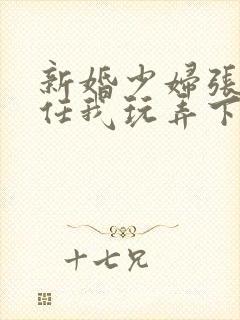 新婚少婦張
任我玩弄下
十七兄